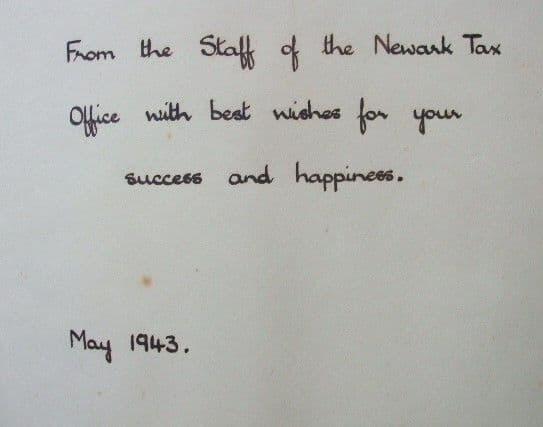 From the Staff of the Newark Tax
Office with best wishes for your
success and happiness.
May 1943.